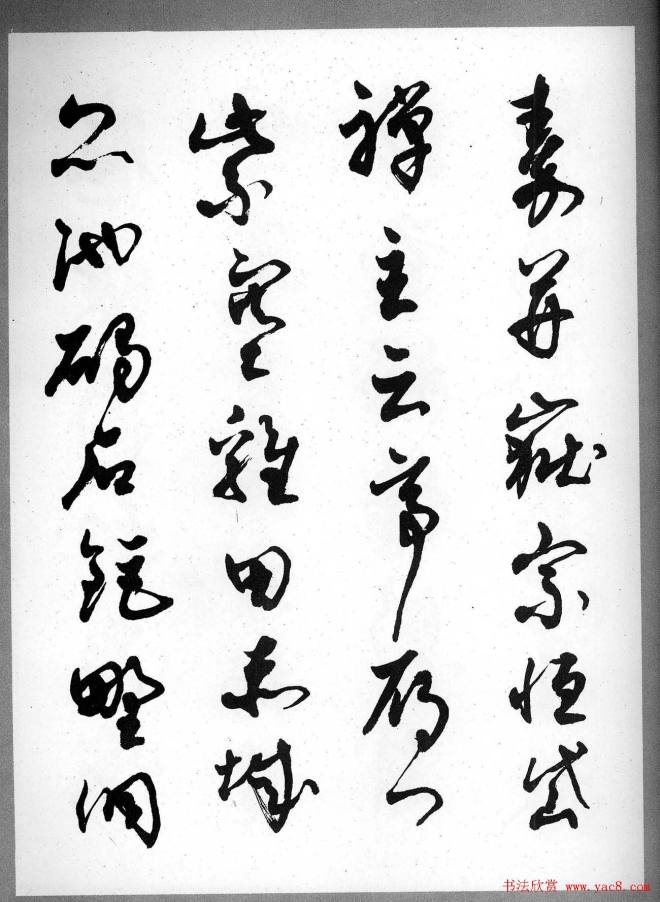 秦并嶽宗恒岱
禅主云亭雁门
紫塞雞田赤城
昆池碣石鉅野洞
书法欣赏 www.yac8.com